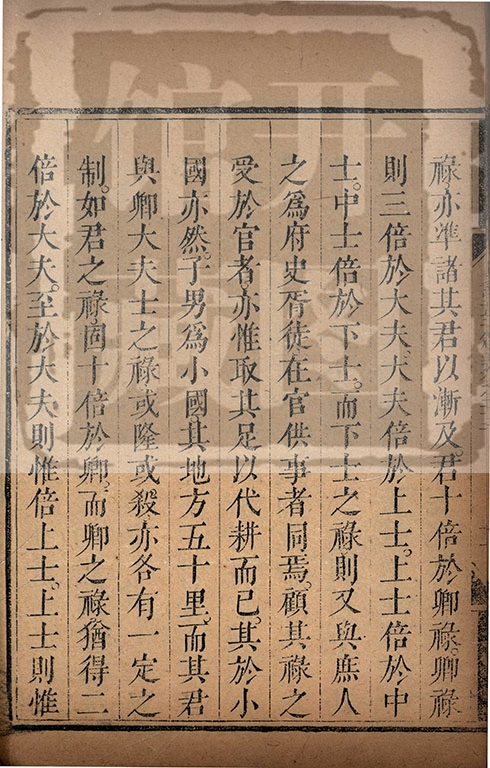 祿亦凖諸其君以漸及君十倍於卿祿卿祿
則三倍於大夫大夫倍於上士上士倍於中
士中士倍於下士而下士之祿則又與庶人
之爲府史胥徒在官供事者同焉顧其祿之
受於官者亦惟取其足以代耕而已其於小
國亦然子男爲小國其地方五十里而其君
與卿大夫士之祿或隆或殺亦各有一定之
制如君之祿固十倍於卿而卿之祿猶得二
倍於大夫至於大夫則惟倍上士上士則惟